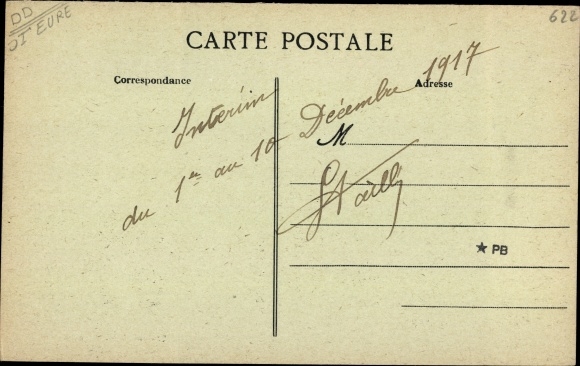 DD
DT EURE
622
CARTE POSTALE
Correspondance
Adresse
Intérim
du 1er au 10 Décembre 1917
M
★ PB